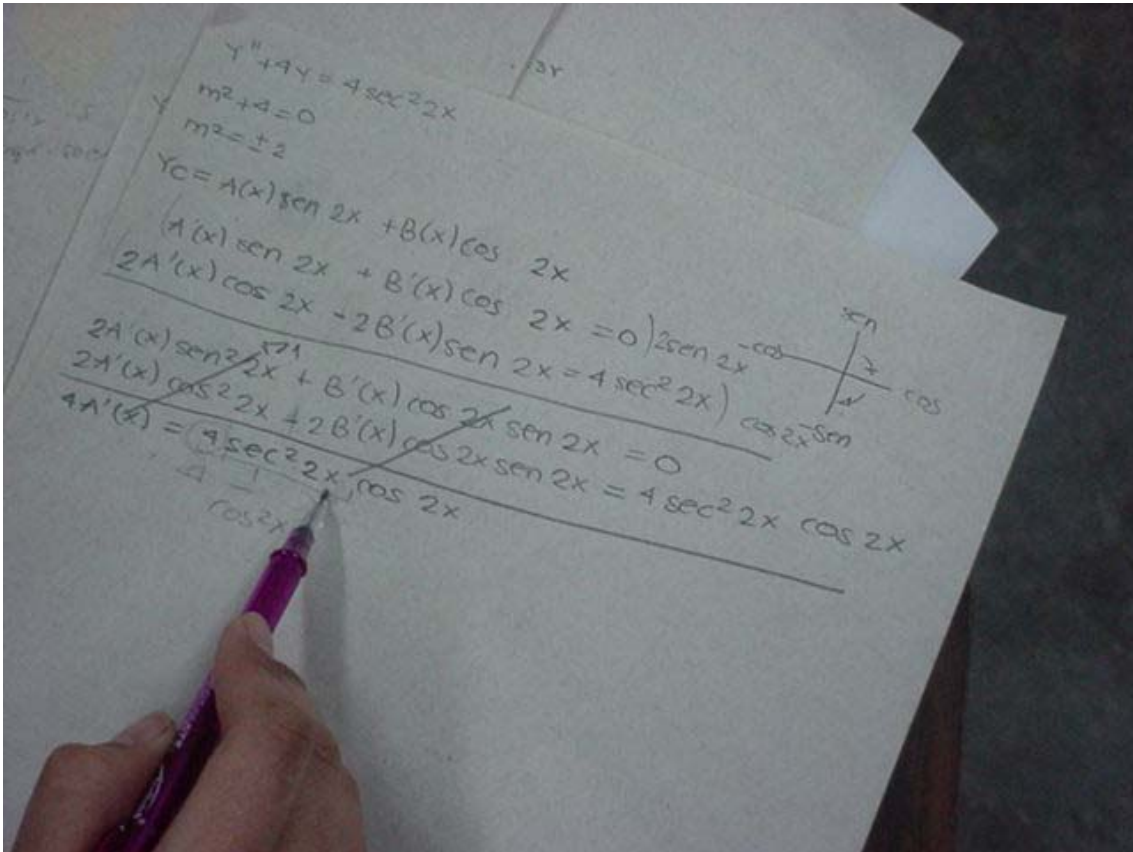 Y"+4Y = 4 sec² 2x
m²+4=0
m²= ± 2
Yc = A(x) sen 2x + B(x) cos 2x
(A'(x) sen 2x + B'(x) cos 2x = 0) 2sen 2x
2A'(x) cos 2x - 2B'(x) sen 2x = 4 sec² 2x) cos 2x
2A'(x) sen² 2x + B'(x) cos 2x sen 2x = 0
2A'(x) cos² 2x + 2B'(x) cos 2x sen 2x = 4 sec² 2x cos 2x
4A'(x) = 4 sec² 2x cos 2x
4 1
cos²x
sen
-cos
cos
-sen